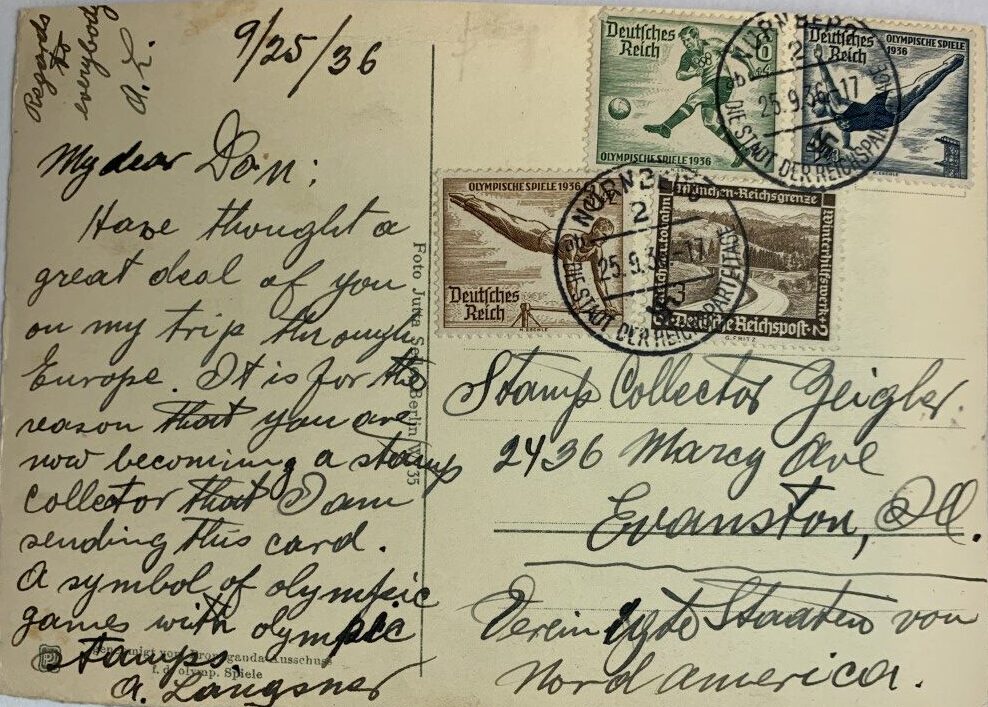 Regards
to
everybody
A. L.
9/25/36
My dear Don:
Have thought a
great deal of you
on my trip through
Europe. It is for the
reason that you are
now becoming a stamp
collector that I am
sending this card.
A symbol of olympic
games with olympic
stamps.
A. Langsner
Foto Jutta Berlin W 35
genehmigt vom Propaganda-Ausschuss
f. d. olymp. Spiele
Deutsches
Reich
OLYMPISCHE SPIELE 1936
Deutsches
Reich
OLYMPISCHE SPIELE
1936
NÜRNBERG
2
25.9.36.-17
DIE STADT DER REICHSPARTEITAGE
OLYMPISCHE SPIELE 1936
Deutsches
Reich
NÜRNBERG
2
25.9.36.-17
DIE STADT DER REICHSPARTEITAGE
München-Reichsgrenze
Winterhilfswerk
Deutsche Reichspost
G.FRITZ
Stamp Collector Zeigler.
2436 Marcy Ave
Evanston, Ill.
Vereinigte Staaten von
Nord america.